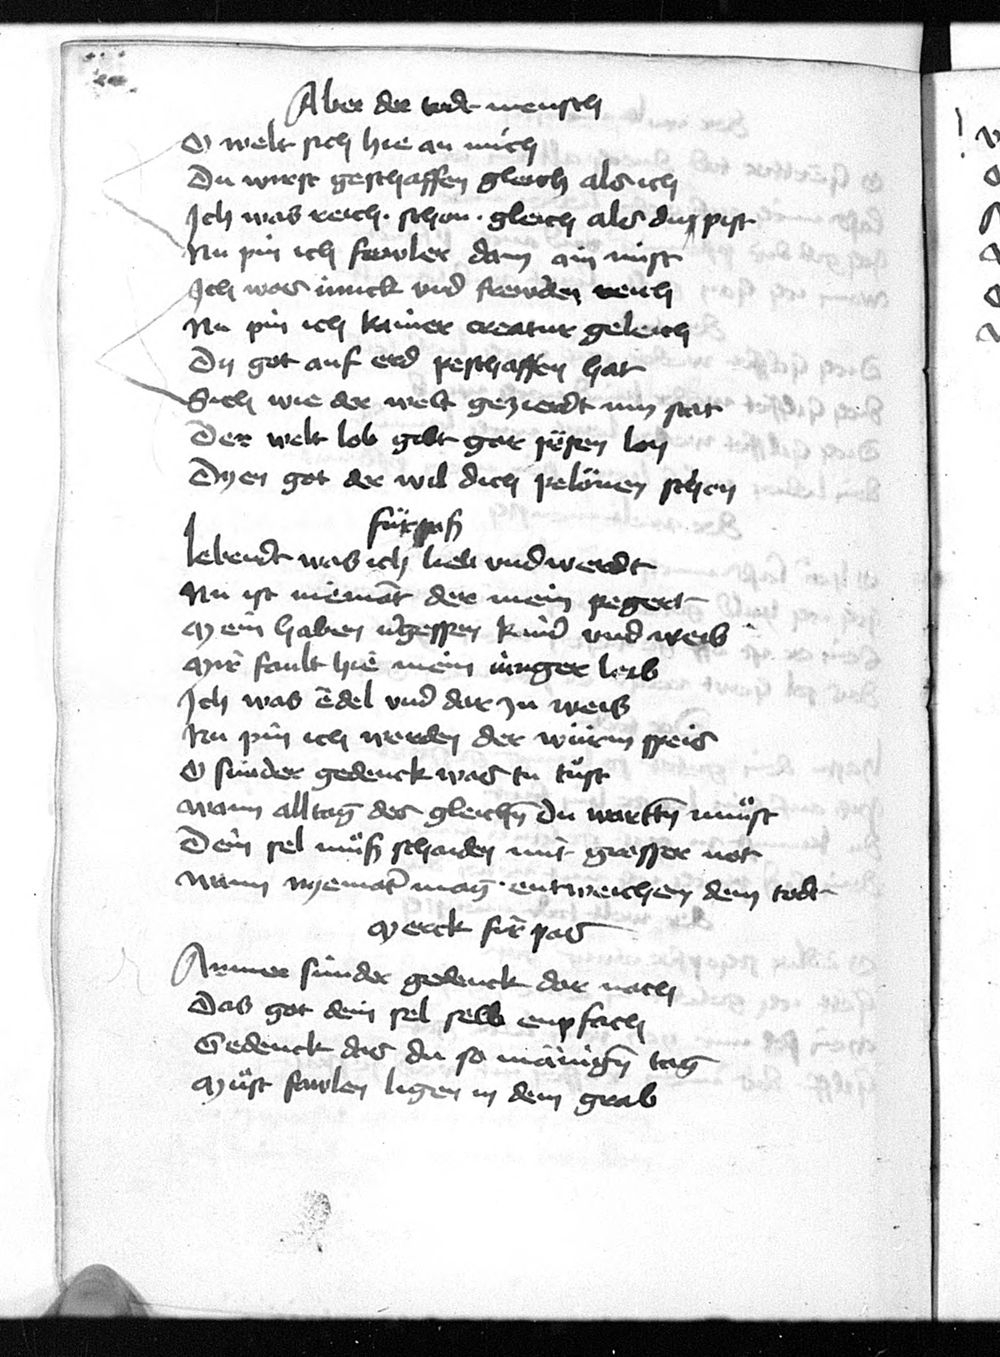 Aber der todt mensch
O welt sich hie an mich
Du wirst geschaffen gleich als ich
Ich was reich · schon · gleich als du pist
Nu pin ich fawler dann ain mist
Ich was iunck vnd frewden reich
Nu pin ich kainer creatur geleich
Dy got auf erd peschaffen hat
Sich wie der welt gezierdt nun stat
Der welt lob gibt gar pösen lon
Dyen got der wil dich pelönen schon
fürpaß
Lebendt was ich lieb vnd werdt
Nu ist niemāt der mein pegert
Mein haben v̄gessen kind vnd weib
Mir fault hie mein iunger leib
Ich was edel vnd dar zu weis
Nu pin ich werden der würm speis
O sunder gedenck was tu tüst
Wann alltag des gleichn̄ du wartn̄ müst
Dein sel müß schaiden mit grosser not
Wann nyemāt mag entweichen dem todt
Merck für pas
Armer sunder gedenck dar nach
Das got dein sel selb enpfach
Gedenck das du so manign̄ tag
Müst fawlen ligen in dem grab